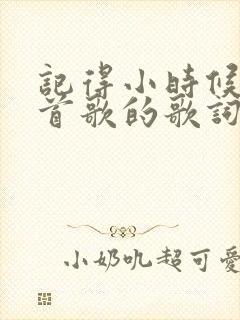 記得小時候
首歌的歌詞
小奶吼超可愛